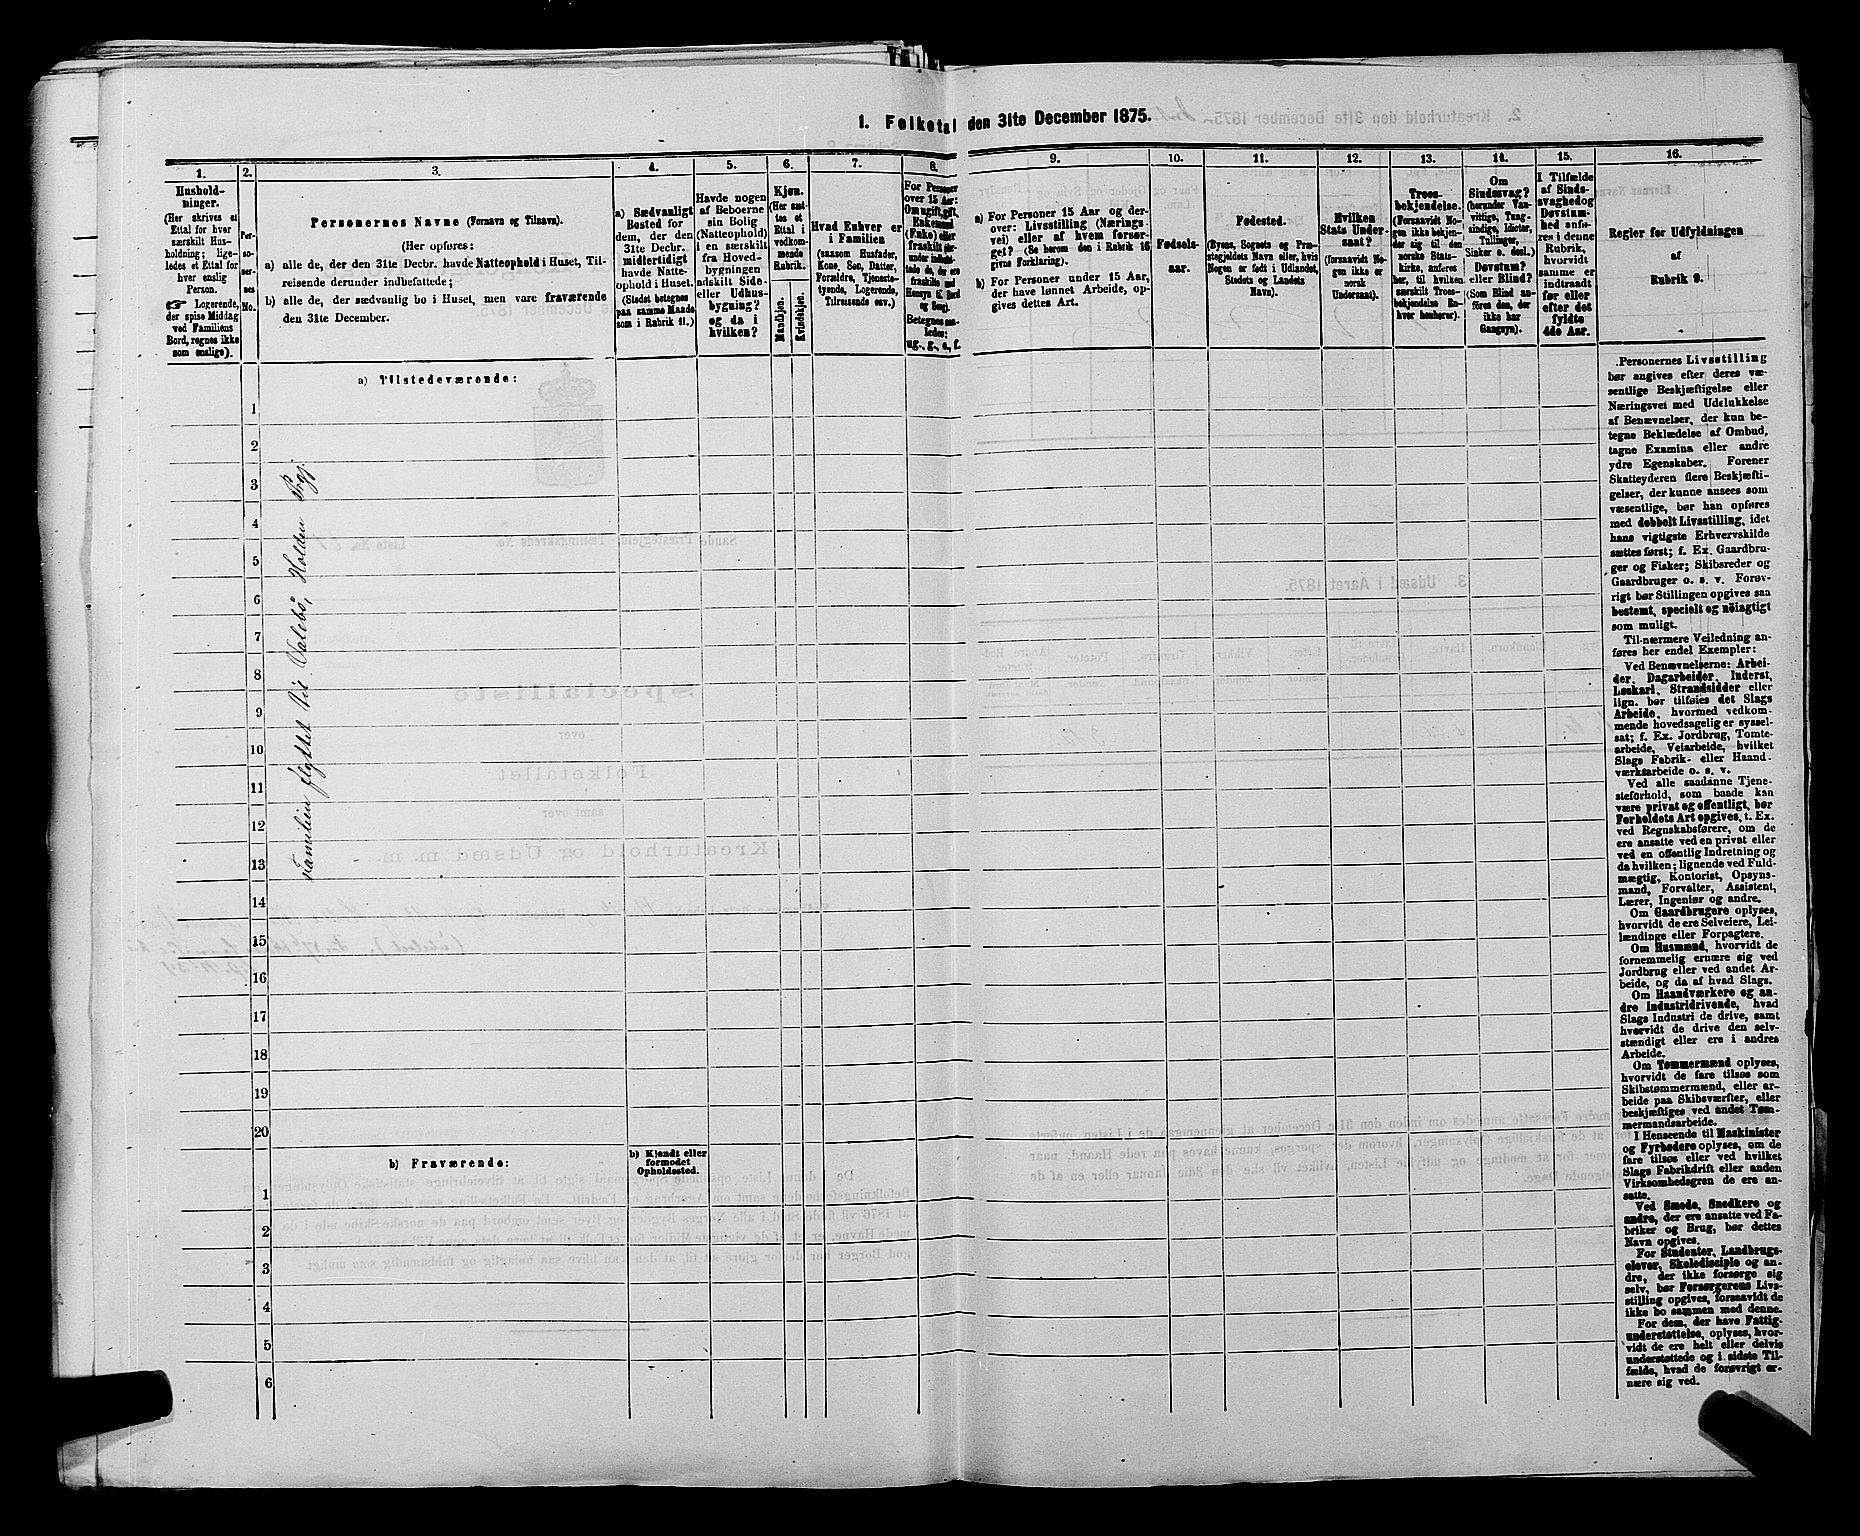 1. Folketal den 31te December 1875.
1.
Hushold-
ninger.
(Her skrives et
Ettal for hver
særskilt Hus-
holdning; lige-
ledes et Ettal for
hver enslig
Person.
☞ Logerende,
der spise Middag
ved Familiens
Bord, regnes ikke
som enslige).
2.
Per-
so-
ner-
nes
No.
3.
Personernes Navne (Fornavn og Tilnavn).
(Her opføres:
a) alle de, der den 31te Decbr. havde Natteophold i Huset, Til-
reisende derunder indbefattede;
b) alle de, der sædvanlig bo i Huset, men vare fraværende
den 31te December.
4.
a) Sædvanligt
Bosted for
dem, der den
31te Decbr.
midlertidigt
havde Natte-
ophold i Huset.
(Stedet betegnes
paa samme Maade
som i Rubrik 11.)
5.
Havde nogen
af Beboerne
sin Bolig
(Natteophold)
i en særskilt
fra Hoved-
bygningen
adskilt Side-
eller Udhus-
bygning?
og da i
hvilken?
6.
Kjøn.
(Her sæt-
tes et
Ettal i
vedkom-
mende
Rubrik.
Mandkjøn.
Kvindekjøn.
7.
Hvad Enhver er
i Familien
(saasom Husfader,
Kone, Søn, Datter,
Forældre, Tjeneste-
tyende, Logerende,
Tilreisende osv.)
8.
For Personer
over 15 Aar:
Om ugift, gift,
Enkemand
(Enke) eller
fraskilt
Betegnes saa-
ledes:
ug., g., e., f.
9.
a) For Personer 15 Aar og der-
over: Livsstilling (Nærings-
vei) eller af hvem forsør-
get. (Se herom den i Rubrik 16
givne Forklaring).
b) For Personer under 15 Aar,
der have lønnet Arbeide, op-
gives dettes Art.
10.
Fødsels-
aar.
11.
Fødested.
(Byens, Sognets og Præ-
stegjeldets Navn eller, hvis
Nogen er født i Udlandet,
Stedets og Landets
Navn).
12.
Hvilken
Stats Under-
saat?
(forsaavidt No-
gen ikke er
norsk
Undersaat).
13.
Troes-
bekjendelse.
(Forsaavidt No-
gen ikke bekjen-
der sig til den
norske Stats-
kirke, anføres
her, til hvilken
særskilt Troes-
bekjendelse En-
hver henhører).
14.
Om
Sindssvag?
(herunder Van-
vittige, Tung-
sindige, Idioter,
Tullinger,
Sinker o. desl.)
Døvstum?
eller Blind?
(Som Blind an-
føres den, der
ikke har
Gangsyn).
15.
I Tilfælde
af Sinds-
svaghed og
Døvstum-
hed anfø-
res i denne
Rubrik,
hvorvidt
samme er
indtraadt
før eller
efter det
fyldte
4de Aar.
16.
Regler for Udfyldningen
af
Rubrik 9.
a) Tilstedeværende:
1
2
3
4
5
6
7
8
9
10
11
12
13
14
15
16
17
18
19
20
Familien flyttet til Valebø, Holden Prgj.
b) Fraværende:
b) Kjendt eller
formodet
Opholdssted.
1
2
3
4
5
6
Personernes Livsstilling
bør angives efter deres væ-
sentlige Beskjæftigelse eller
Næringsvei med Udelukkelse
af Benævnelser, der kun be-
tegne Beklædelse af Ombud,
tagne Examina eller andre
ydre Egenskaber. Forener
Skatteyderen flere Beskjæfti-
gelser, der kunne ansees som
væsentlige, bør han opføres
med dobbelt Livsstilling, idet
hans vigtigste Erhvervskilde
sættes først; f. Ex. Gaardbru-
ger og Fisker; Skibsreder og
Gaardbruger o. s. v. Forøv-
rigt bør Stillingen opgives saa
bestemt, specielt og nöiagtigt
som muligt.
Til nærmere Veiledning an-
føres her endel Exempler:
Ved Benævnelserne: Arbei-
der, Dagarbeider, Inderst,
Løskarl, Strandsidder eller
lign. bør tilføies det Slags
Arbeide, hvormed vedkom-
mende hovedsagelig er syssel-
sat; f. Ex. Jordbrug, Tomte-
arbeide, Veiarbeide, hvilket
Slags Fabrik- eller Haand-
værksarbeide o. s. v.
Ved alle saadanne Tjene-
steforhold, som baade kan
være privat og offentligt, bør
Forholdets Art opgives, t. Ex.
ved Regnskabsførere, om de
ere ansatte ved en privat eller
ved en offentlig Indretning og
da hvilken; lignende ved Fuld-
mægtig, Kontorist, Opsyns-
mand, Forvalter, Assistent,
Lærer, Ingeniør og andre.
Om Gaardbrugere oplyses,
hvorvidt de ere Selveiere, Lei-
lændinge eller Forpagtere.
Om Husmænd, hvorvidt de
fornemmelig ernære sig ved
Jordbrug eller ved andet Ar-
beide, og da af hvad Slags.
Om Haandværkere og an-
dre Industridrivende, hvad
Slags Industri de drive, samt
hvorvidt de drive den selv-
stændigt eller ere i andres
Arbeide.
Om Tømmermænd oplyses,
hvorvidt de fare tilsøs som
Skibstømmermænd, eller ar-
beide paa Skibsværfter, eller
beskjæftiges ved andet Tøm-
mermandsarbeide.
I Henseende til Maskinister
og Fyrbødere oplyses, om de
fare tilsøs eller ved hvilket
Slags Fabrikdrift eller anden
Virksomhedsgren de ere an-
satte.
Ved Smede, Snedkere og
andre, der ere ansatte ved Fa-
briker og Brug, bør dettes
Navn opgives.
For Studenter, Landbrugs-
elever, Skoledisciple og an-
dre, der ikke forsørge sig
selv, bør Forsørgerens Livs-
stilling opgives, forsaavidt de
ikke bo sammen med denne.
For dem, der have Fattig-
understøttelse, oplyses, hvor-
vidt de ere helt eller delvis
understøttede og i sidste Til-
fælde, hvad de forøvrigt er-
nære sig ved.